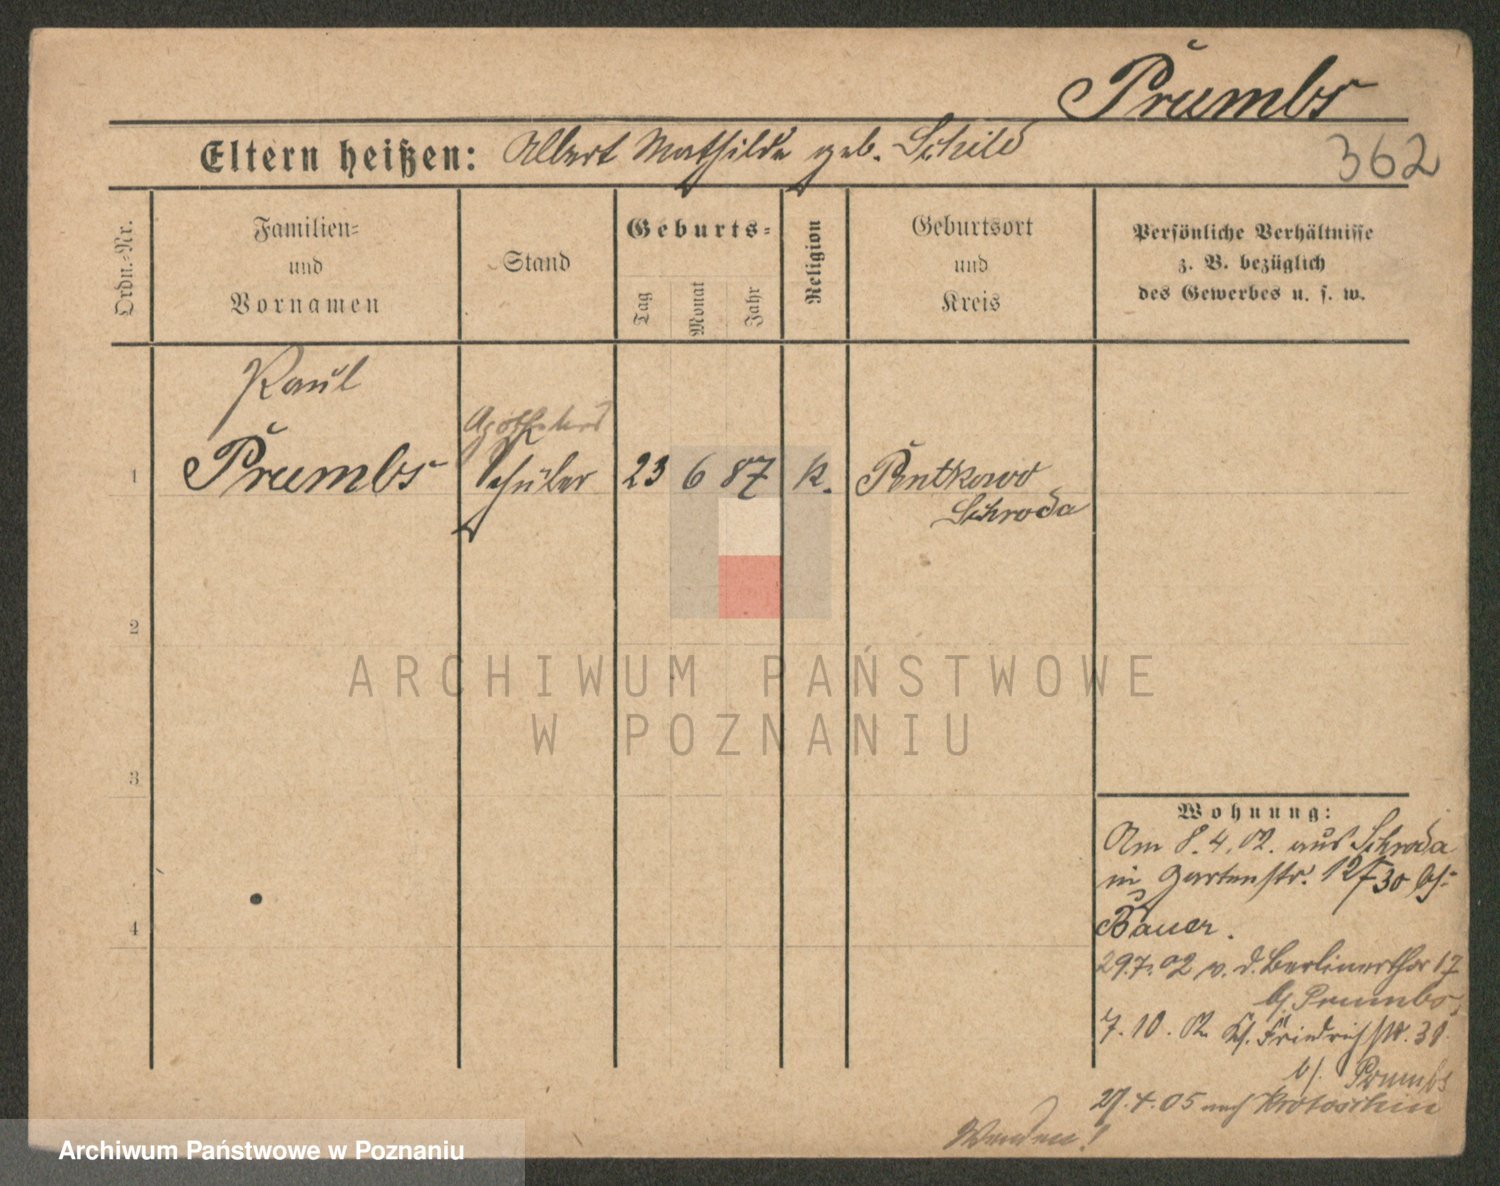 Prumbs
Eltern heißen: Albert Mathilde geb. Schild
362
Ordn.-Nr.
Familien-
und
Vornamen
Stand
Geburts-
Tag
Monat
Jahr
Religion
Geburtsort
und
Kreis
Persönliche Verhältnisse
z. B. bezüglich
des Gewerbes u. s. w.
Paul
Apotheker
1 Prumbs Schüler 23 6 87 K. Pentkowo
Schroda
2
ARCHIWUM PAŃSTWOWE
W POZNANIU
3
4
Wohnung:
Am 8.4.02. aus Schroda
in Gartenstr. 12/30 bei
Bauer.
29.7.02 v. d. Berlinerthor 17
bj Prumbs,
7.10.02 Friedrichstr. 30
bj. Prumbs
27.4.05 nach Krotoschin
Wenden!
Archiwum Państwowe w Poznaniu